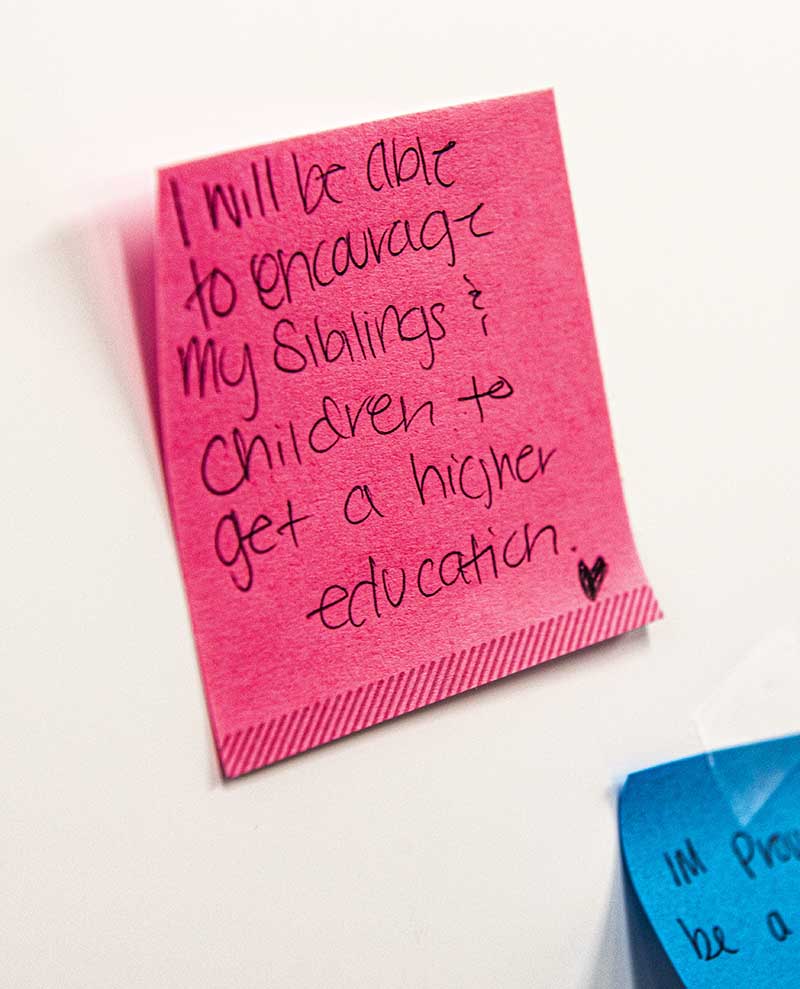 I will be able
to encourage
my siblings &
children to
get a higher
education. ♥
IM
be a